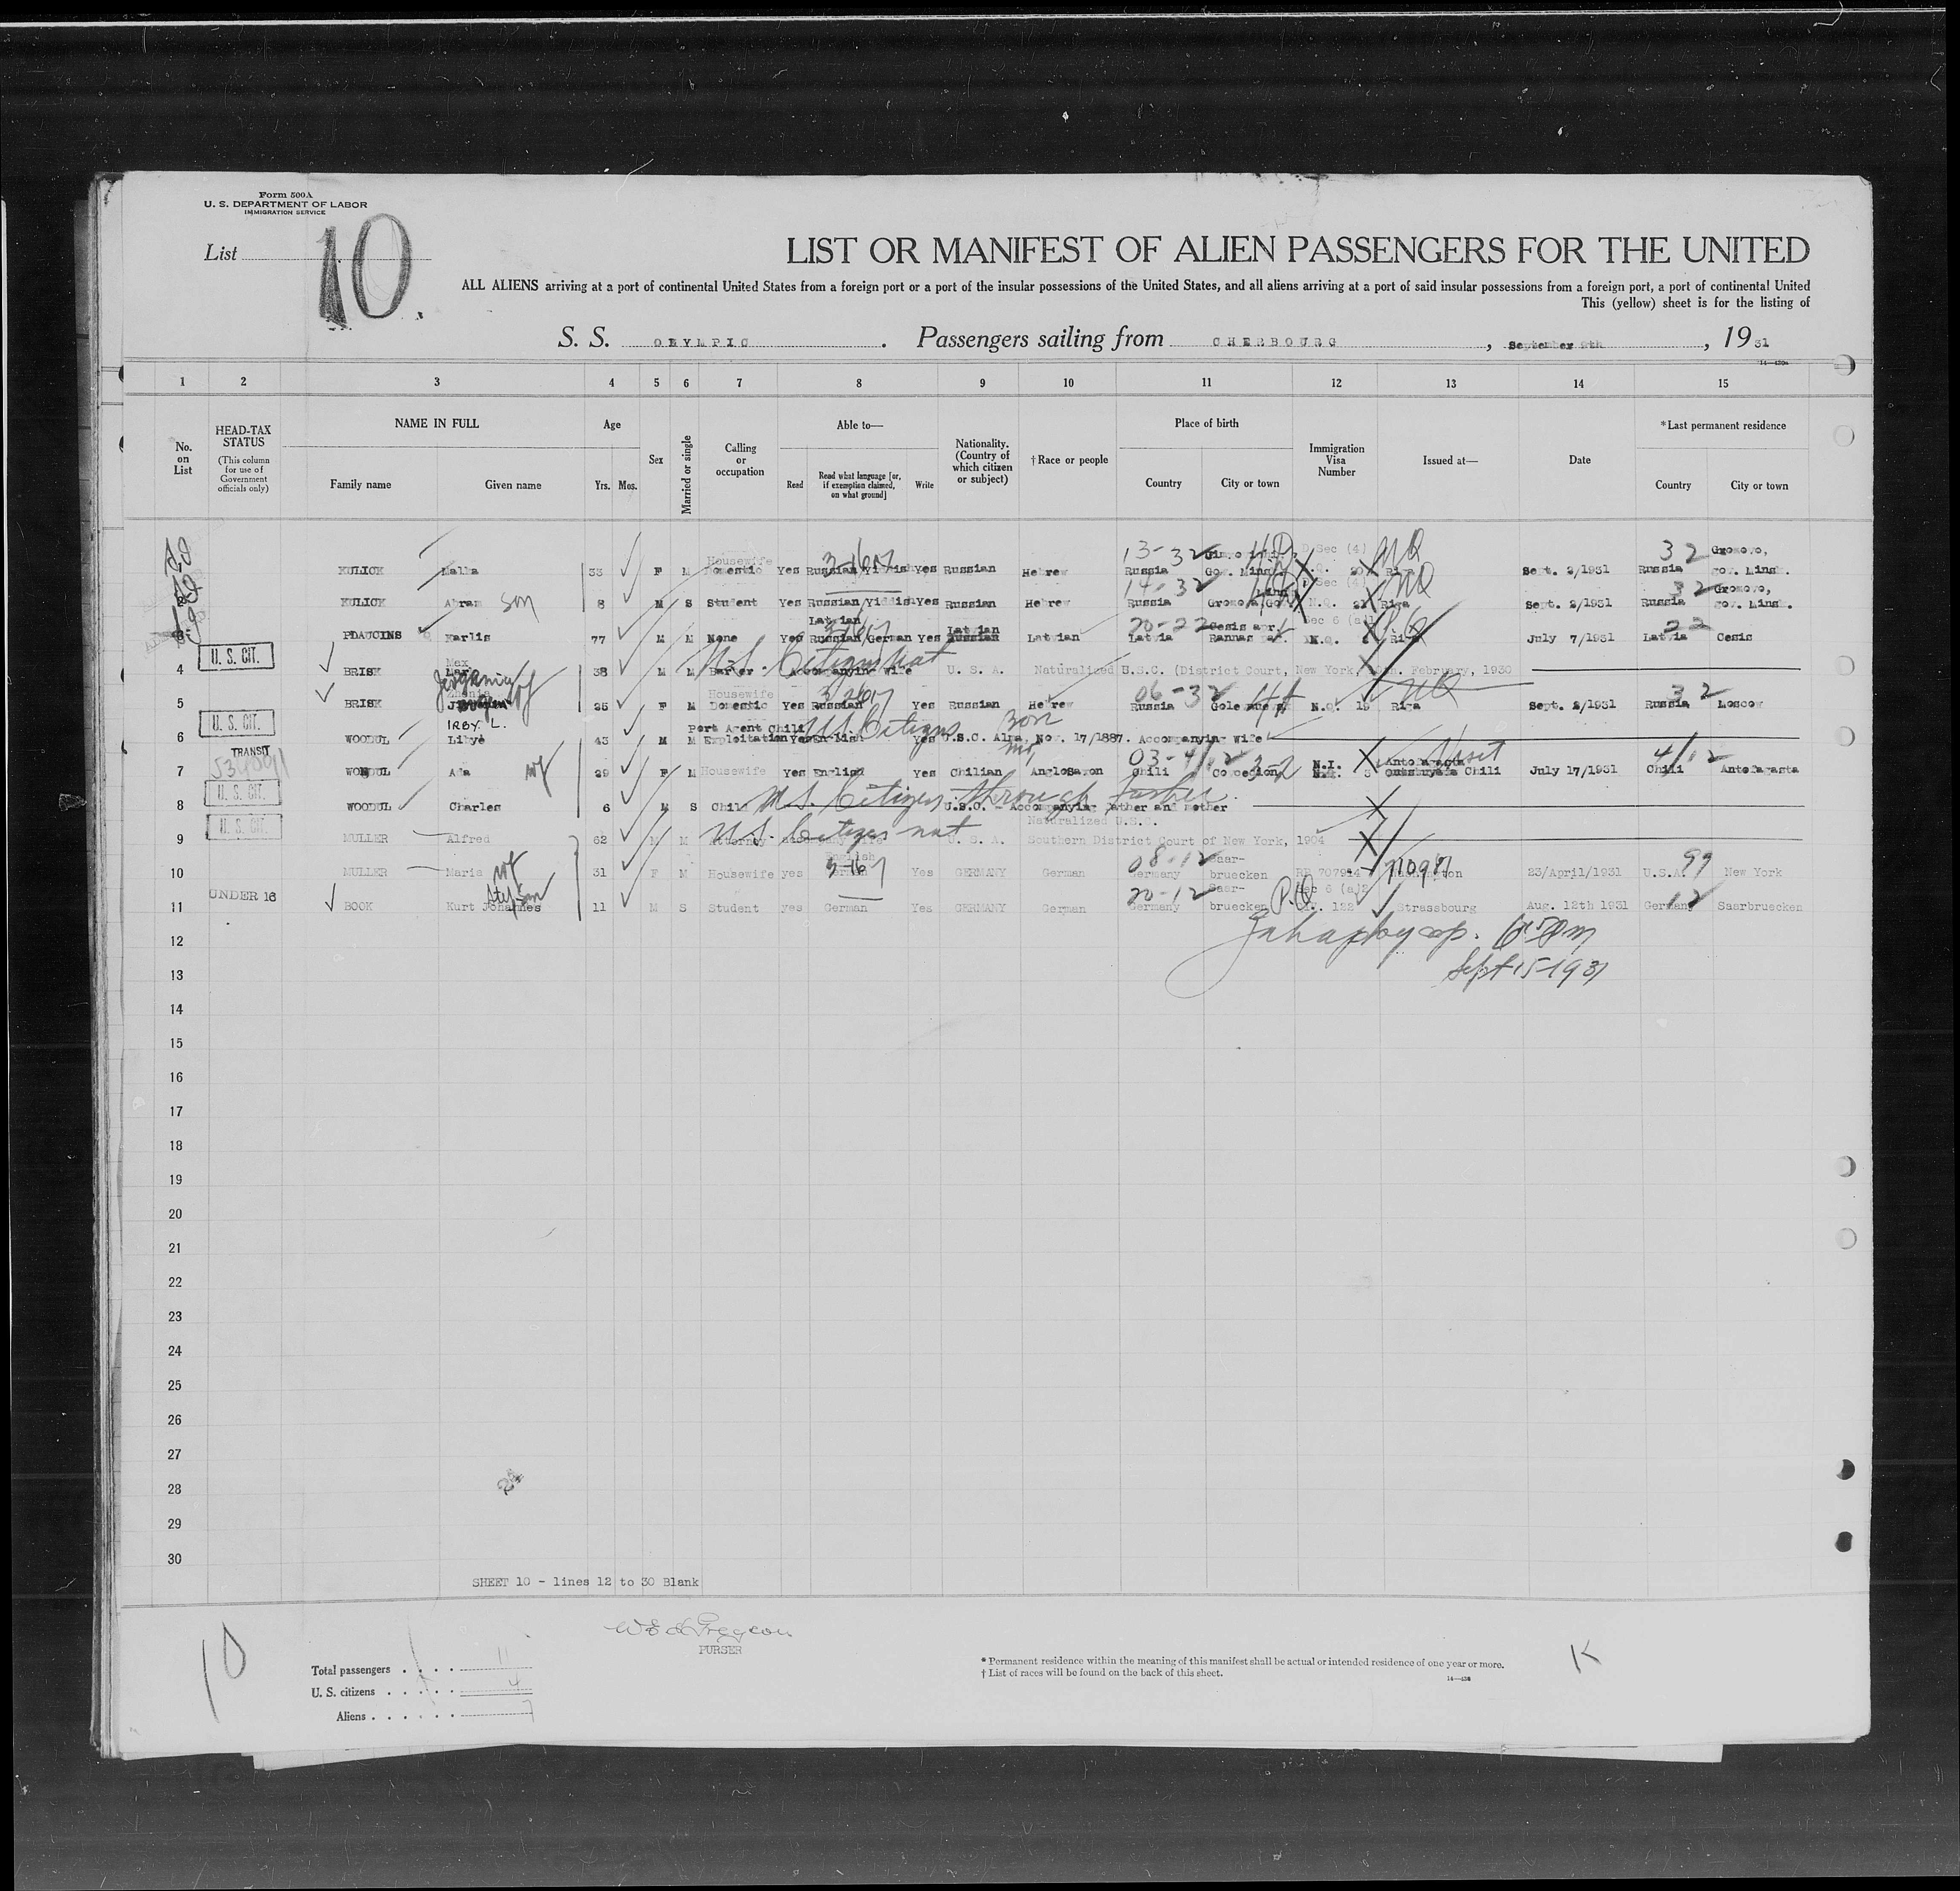 Form 500A
U. S. DEPARTMENT OF LABOR
IMMIGRATION SERVICE
List 10.
LIST OR MANIFEST OF ALIEN PASSENGERS FOR THE UNITED
ALL ALIENS arriving at a port of continental United States from a foreign port or a port of the insular possessions of the United States, and all aliens arriving at a port of said insular possessions from a foreign port, a port of continental United
This (yellow) sheet is for the listing of
S. S. OLYMPIC . Passengers sailing from CHERBOURG , September 9th , 19 31
1 2 3 4 5 6 7 8 9 10 11 12 13 14 15
No. on List
HEAD-TAX STATUS (This column for use of Government officials only)
NAME IN FULL Family name Given name
Age Yrs. Mos.
Sex
Married or single
Calling or occupation
Able to— Read Read what language [or, if exemption claimed, on what ground] Write
Nationality. (Country of which citizen or subject)
†Race or people
Place of birth Country City or town
Immigration Visa Number
Issued at—
Date
*Last permanent residence Country City or town
KULICK Malka 33 F M Housewife Domestic Yes Russian/Yiddish Yes Russian Hebrew 13-32 Russia Gov. Minsk Sec (4) 20 NQ Riga Sept. 2/1931 32 Russia Gromovo, gov. Minsk.
KULICK Abram son 8 M S Student Yes Russian/Yiddish Yes Russian Hebrew 14-32 Russia Sec (4) N.Q. 21 NQ Riga Sept. 2/1931 32 Russia Gromovo, gov. Minsk.
3 PLAUCINS Karlis 77 M M None Yes Latvian Russian/German Yes Latvian Russian Latvian 20-22 Latvia Sec 6 (a) N.Q. Riga July 7/1931 22 Latvia Cesis
4 U. S. CIT. BRISK Max 38 M M Accompanying Wife U.S. Citizen nat U. S. A. Naturalized U.S.C. (District Court, New York, February, 1930
5 BRISK Zhenia wf 25 F M Housewife Domestic Yes Russian Yes Russian Hebrew 06-32 Russia N.Q. 19 NQ Riga Sept. 2/1931 32 Russia Moscow
6 U. S. CIT. WOODUL IRBY L. 43 M M Port Agent Chili Exploitation Yes English U.S. Citizen Born Yes U.S.C. Nov. 17/1887. Accompanying Wife
7 TRANSIT WOODUL Ada wf 29 F M Housewife Yes English Yes Chilian AngloSaxon 03-41 Chili Concecion N.I. 3 Visit Antofagasta Chili July 17/1931 41 Chili Antofagasta
8 U. S. CIT. WOODUL Charles 6 M S Child U.S. Citizen through father U.S.C. - Accompanying father and mother
9 U. S. CIT. MULLER Alfred 62 M M Attorney U.S. Citizen nat U. S. A. Naturalized U.S.C. Southern District Court of New York, 1904
10 MULLER Maria wf 31 F M Housewife yes English German Yes GERMANY German 08-12 Germany Saarbruecken Washington 23/April/1931 99 U.S.A. New York
11 UNDER 16 BOOK Kurt Johannes stepson 11 M S Student yes German Yes GERMANY German 20-12 Germany Saar-bruecken P.Q. Sec 6 (a)2 122 Strassbourg Aug. 12th 1931 12 Germany Saarbruecken
12
13 Sept 15-1931
14
15
16
17
18
19
20
21
22
23
24
25
26
27
28
29
30
24
SHEET 10 - lines 12 to 30 Blank
PURSER
10
Total passengers . . . . 11
U. S. citizens . . . . . 4
Aliens . . . . . . 7
* Permanent residence within the meaning of this manifest shall be actual or intended residence of one year or more.
† List of races will be found on the back of this sheet.
K